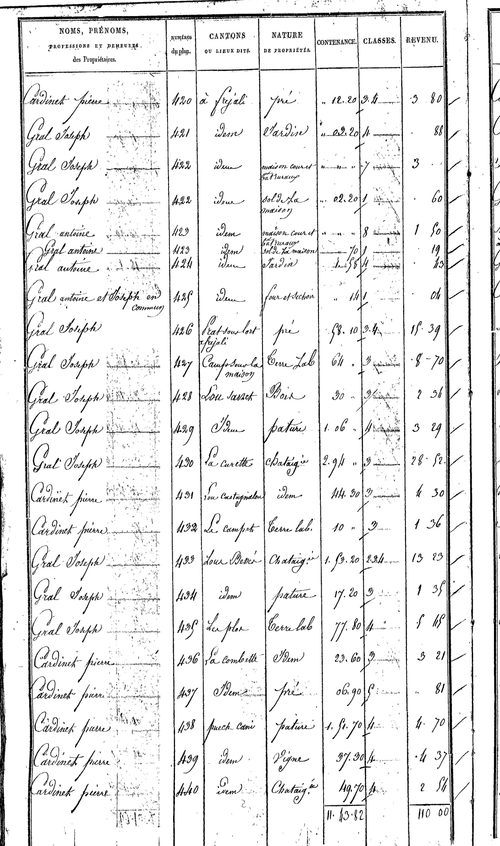 NOMS, PRÉNOMS, PROFESSIONS ET DEMEURES des Propriétaires. NUMÉRO du plan. CANTONS OU LIEUX DITS. NATURE DE PROPRIÉTÉS. CONTENANCE. CLASSES. REVENU.
Cardinet pierre 420 à frejali pré " 12. 20 3.4 3 80
Gral Joseph 421 idem Jardin " 03. 20 4 . 88
Gral Joseph 422 idem maison cour et " " " 7 3
Gral Joseph 422 idem sol de la maison " 02. 20 1 . 60
Gral antoine 423 idem maison cour et " " " 8 1 50
Gral antoine 423 idem sol de la maison 70 1 19
Gral antoine 424 idem Jardin 4 43
Gral antoine et Joseph en commun 425 idem four et sechoir " 14 1 04
Gral Joseph 426 Prat sous lort a frejali pré 58. 10 3.4 15 39
Gral Joseph 427 Camp sous la maison Terre Lab 64 " 3 8 70
Gral Joseph 428 Lou Bois 30 " 3 2 36
Gral Joseph 429 Idem pature 1. 06 " 4 3 29
Gral Joseph 430 La curette chataigie 2. 94 " 3 28 52
Cardinet pierre 431 Lou Castagnalou idem 44. 30 3 4 30
Cardinet pierre 432 Le campet Terre lab. 10 " 3 1 36
Gral Joseph 433 Chataigie 1. 53. 20 2.3.4 13 23
Gral Joseph 434 idem pature 17. 20 3 1 35
Gral Joseph 435 Les plos Terre lab 77. 80 4 5 45
Cardinet pierre 436 La combette Idem 23. 60 3 3 21
Cardinet pierre 437 Idem pré 06. 90 5 " 81
Cardinet pierre 438 puech cani pature 1. 51. 70 4 4 70
Cardinet pierre 439 idem Vigne 37. 30 4 4 37
Cardinet pierre 440 idem Chataigie 49. 70 4 2 54
11. 43. 82 110 00